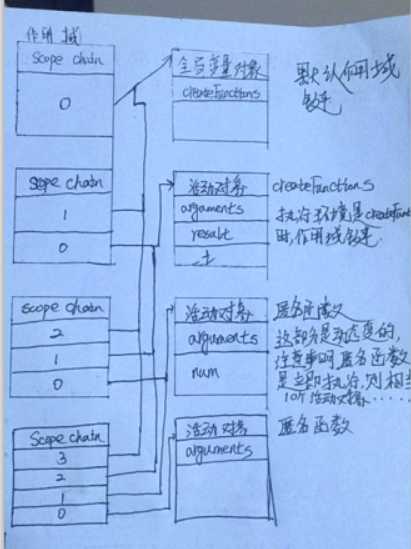 作用域
Scope chain
0
全局变量对象
createFunctions
默认作用域
链
scope chain
1
0
活动对象
arguments
result
i
createFunctions
执行环境是createFunct
时,作用域链是.
scope chain
2
1
0
活动对象
arguments
num
匿名函数
这部分是动态变的,
注意事项 匿名函数
是立即执行,则相当
10个活动对象.....
Scope chain
3
2
1
0
活动对象
arguments
匿名函数